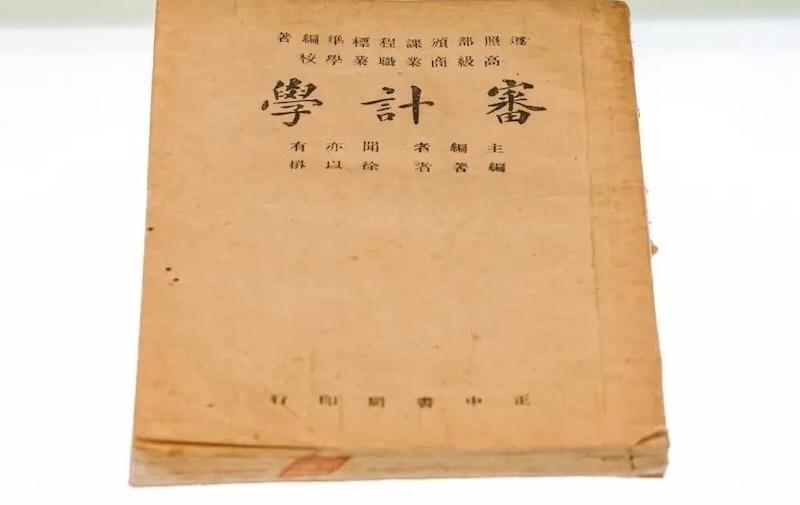 遵照部頒課程標準編著
高級商業職業學校
審計學
主編者 聞亦有
編著者 徐以
正中書局印行